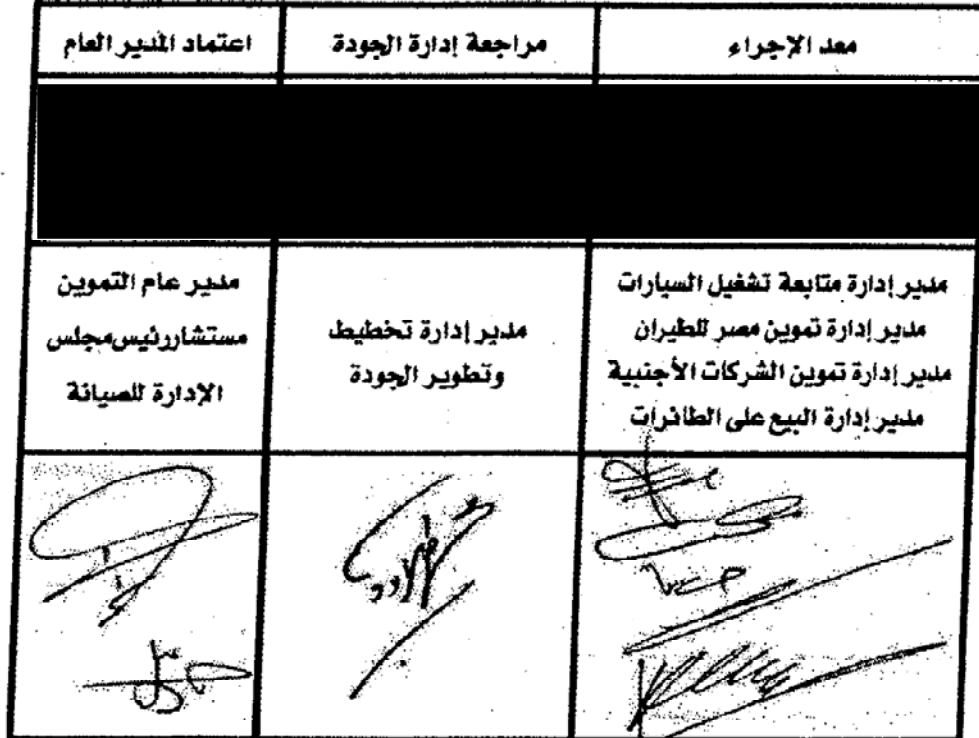 معد الإجراء
مراجعة إدارة الجودة
اعتماد المدير العام
مدير إدارة متابعة تشغيل السيارات
مدير إدارة تموين مصر للطيران
مدير إدارة تموين الشركات الأجنبية
مدير إدارة البيع على الطائرات
مدير إدارة تخطيط
وتطوير الجودة
مدير عام التموين
مستشاررئيس مجلس
الإدارة للصيانة